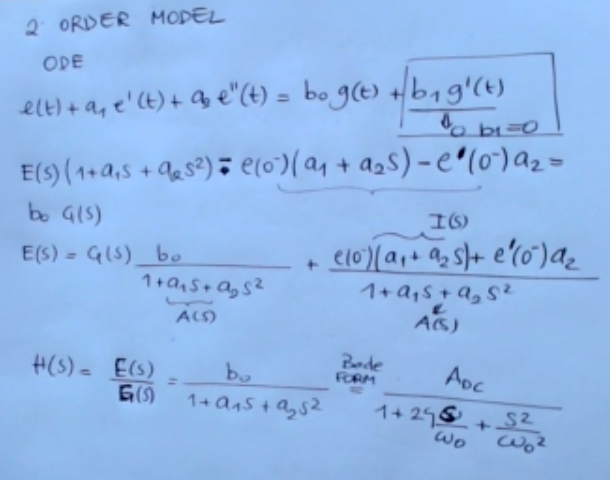 2 ORDER MODEL
ODE
e(t) + a₁ e'(t) + a₂ e''(t) = b₀ g(t) + b₁ g'(t)
↓0 b₁=0
E(s)(1+a₁s + a₂s²) - e(0⁻)(a₁ + a₂s) - e'(0⁻)a₂ =
b₀ G(s)
I(s)
E(s) = G(s) b₀ / (1+a₁s+a₂s²) + (e(0⁻)(a₁+a₂s) + e'(0⁻)a₂) / (1+a₁s+a₂s²)
A(s) A(s)
H(s) = E(s)/G(s) = b₀ / (1+a₁s+a₂s²) Bode FORM = A_DC / (1 + 2ζ s/ω₀ + s²/ω₀²)